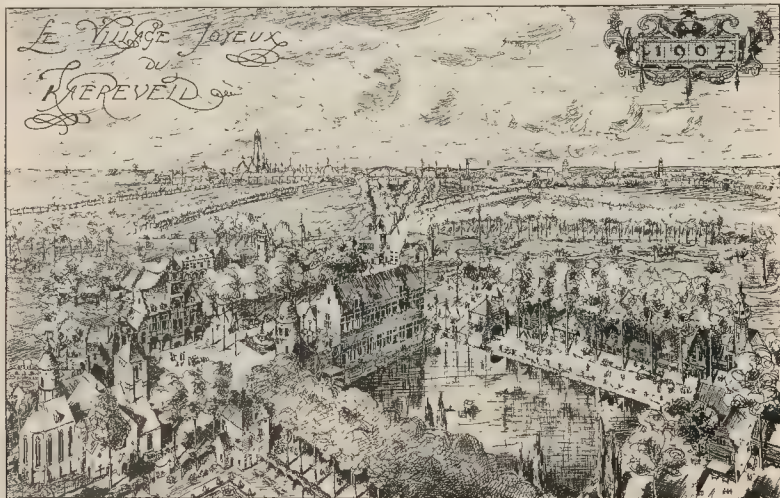 LE VILLAGE JOYEUX
DU
KAEREVELD
1907